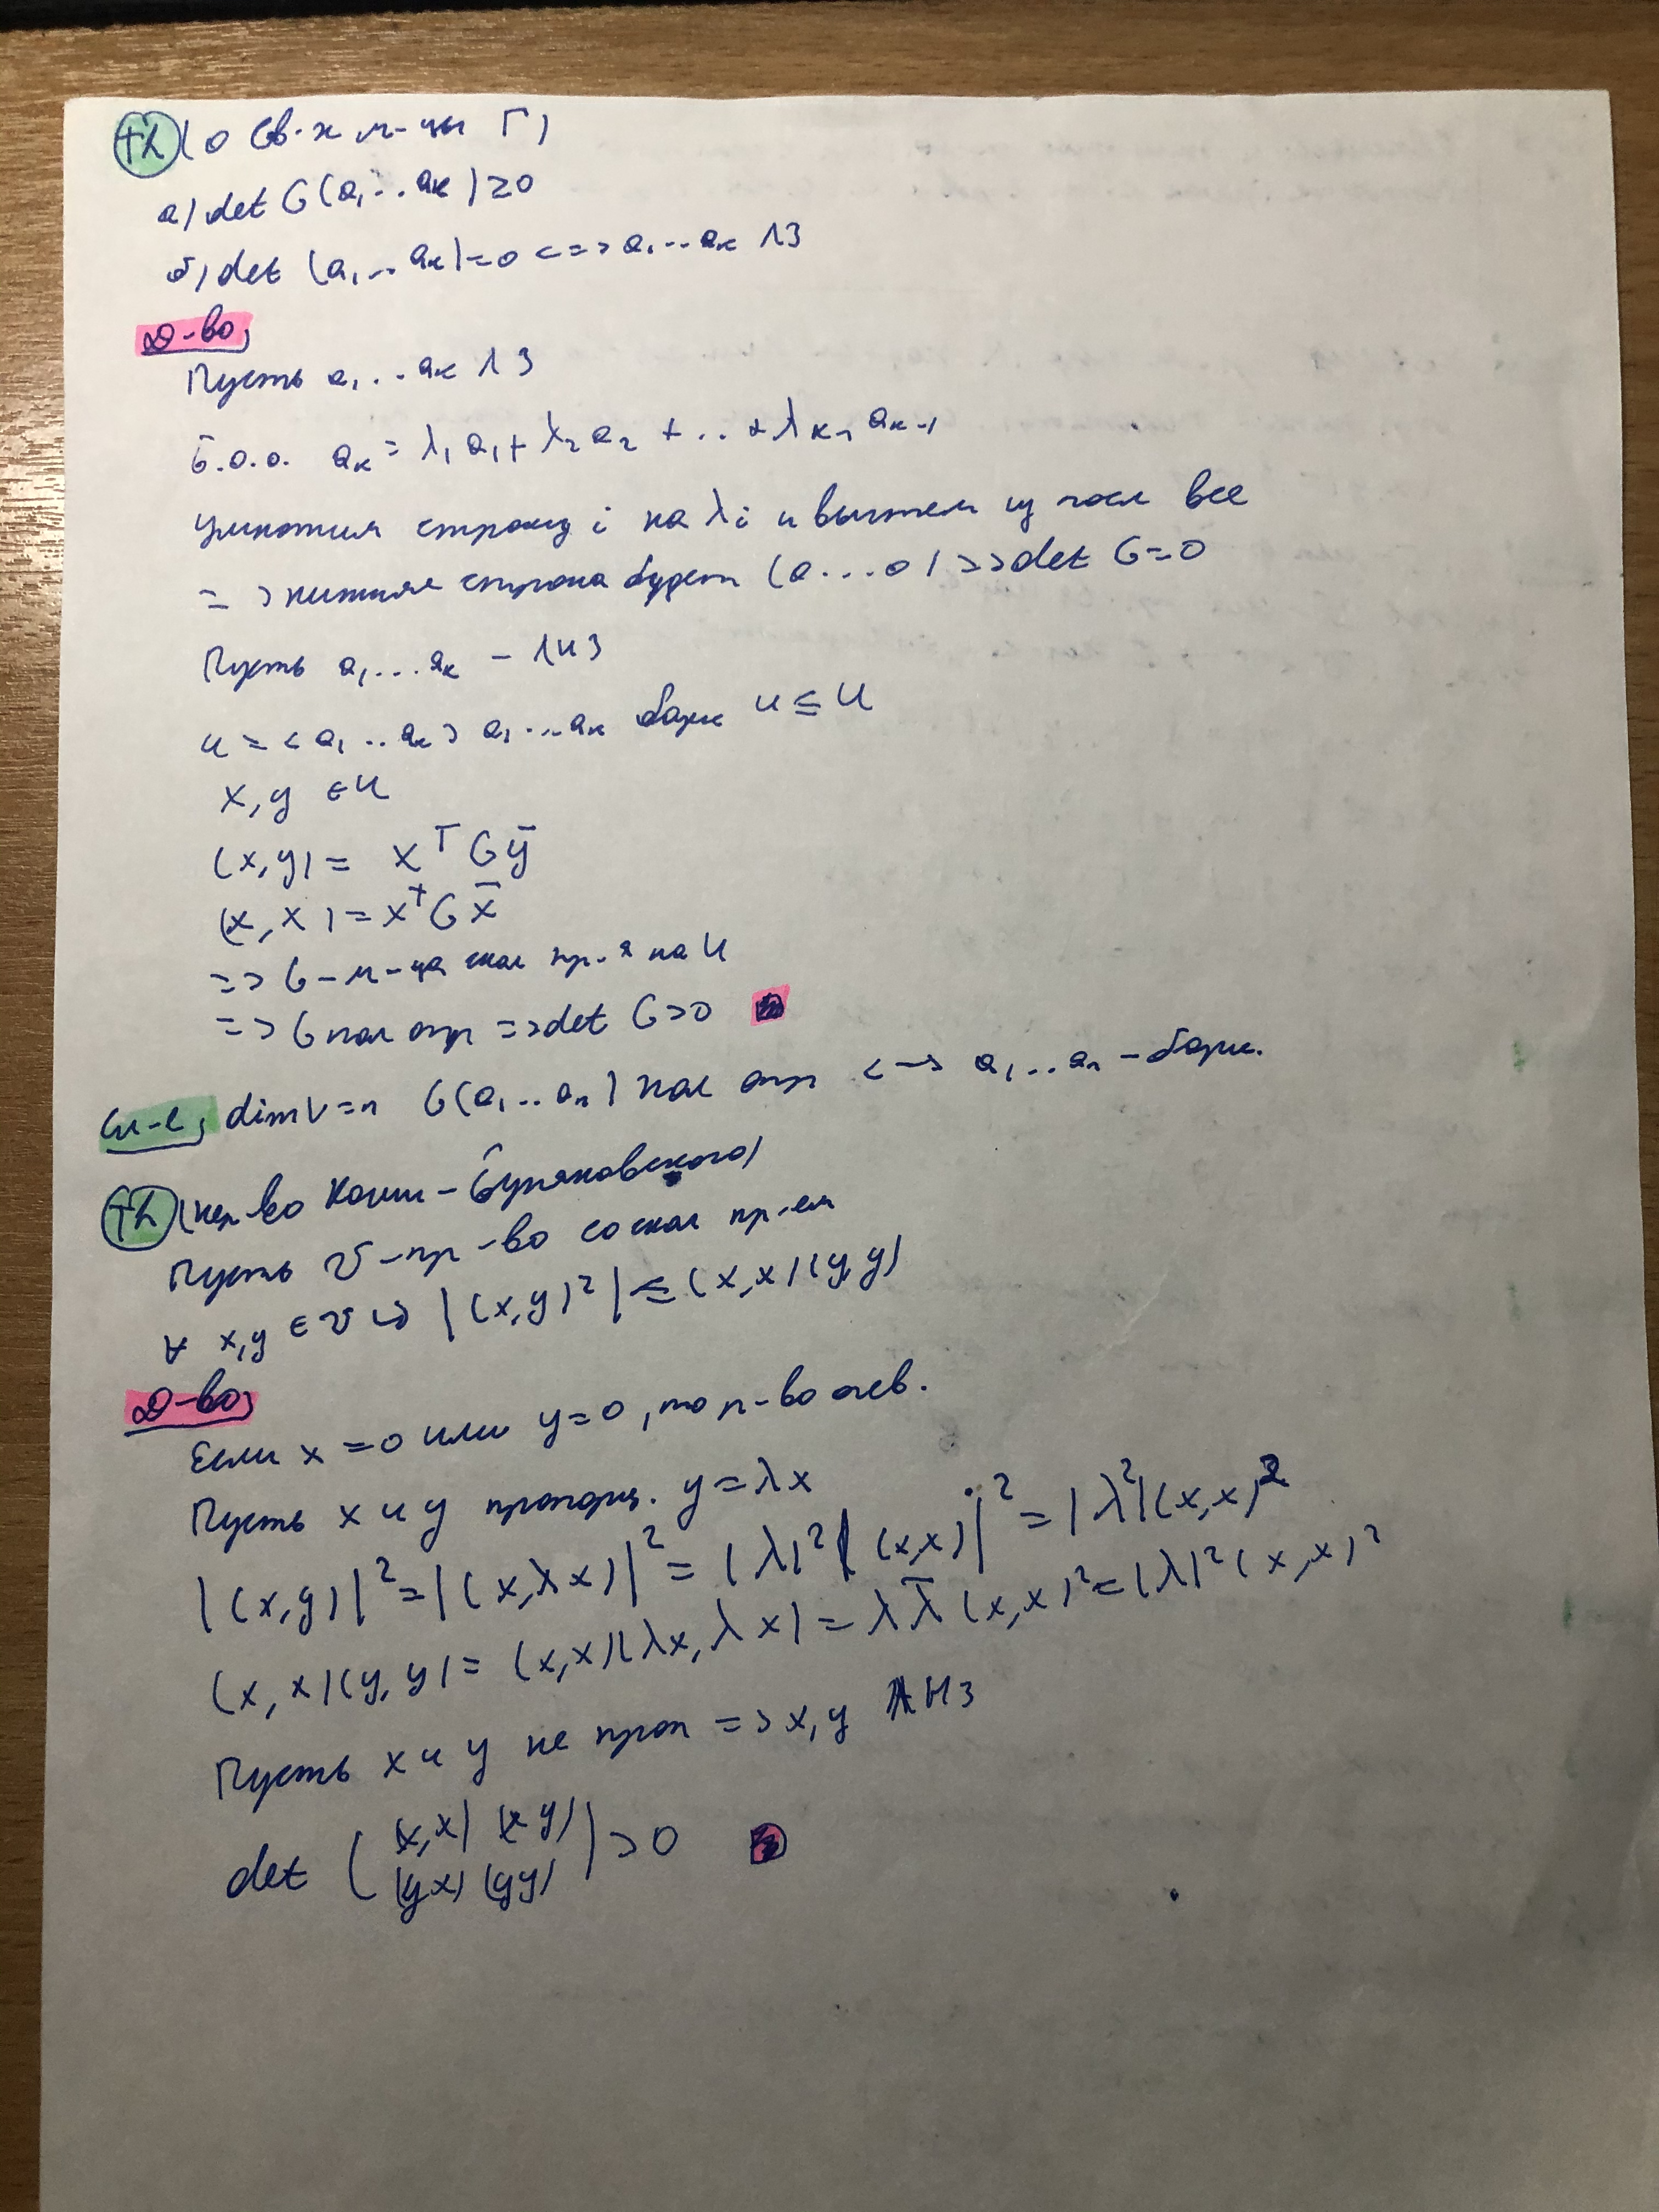 Th (о св-х м-цы Г)
а) det G(a₁...aₖ) ≥ 0
б) det (a₁...aₖ) = 0 <=> a₁...aₖ ЛЗ
Д-во,
Пусть a₁...aₖ ЛЗ
Б.О.О. aₖ = λ₁a₁ + λ₂a₂ + ... + λₖ₋₁aₖ₋₁
умножим строку i на λi и вычтем из посл все
=> нижняя строка будет (0...0) => det G = 0
Пусть a₁...aₖ - ЛНЗ
U = <a₁...aₖ> a₁...aₖ базис U ⊆ U
x, y ∈ U
(x, y) = xᵀGȳ
(x, x) = xᵀGx̄
=> G - м-ца скал пр-я на U
=> G пол опр => det G > 0
Сл-е, dim V = n G(a₁...aₙ) пол опр <-> a₁...aₙ - базис.
Th (нер-во Коши-Буняковского)
Пусть V - пр-во со скал пр-ем
∀ x,y ∈ V ↪ |(x,y)²| ≤ (x,x)(y,y)
Д-во,
Если x = 0 или y = 0, то н-во очев.
Пусть x и y пропорц. y = λx
|(x,y)|² = |(x,λx)|² = |λ|²|(x,x)|² = |λ²|(x,x)²
(x,x)(y,y) = (x,x)(λx,λx) = λλ̄(x,x)² = |λ|²(x,x)²
Пусть x и y не проп => x,y ЛНЗ
det ( (x,x) (x y)
(y x) (y y) ) > 0